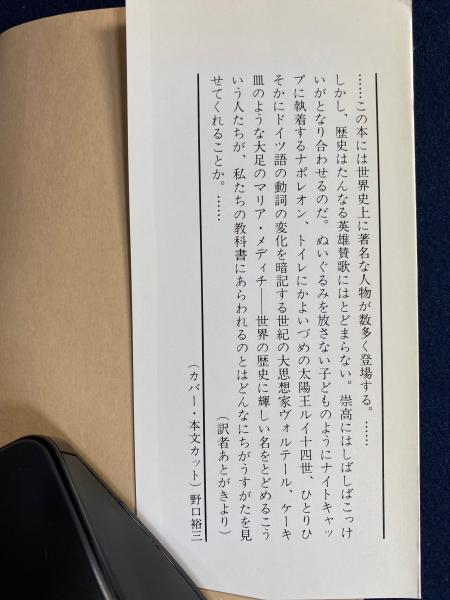 ……この本には世界史上に著名な人物が数多く登場する。……
しかし、歴史はたんなる英雄賛歌にはとどまらない。崇高にはしばしばこっけ
いがとなり合わせるのだ。ぬいぐるみを放さない子どものようにナイトキャッ
プに執着するナポレオン、トイレにかよいづめの太陽王ルイ十四世、ひとりひ
そかにドイツ語の動詞の変化を暗記する世紀の大思想家ヴォルテール、ケーキ
皿のような大足のマリア・メディチ——世界の歴史に輝しい名をとどめるこう
いう人たちが、私たちの教科書にあらわれるのとはどんなにちがうすがたを見
せてくれることか。……
（訳者あとがきより）
（カバー・本文カット）野口裕三